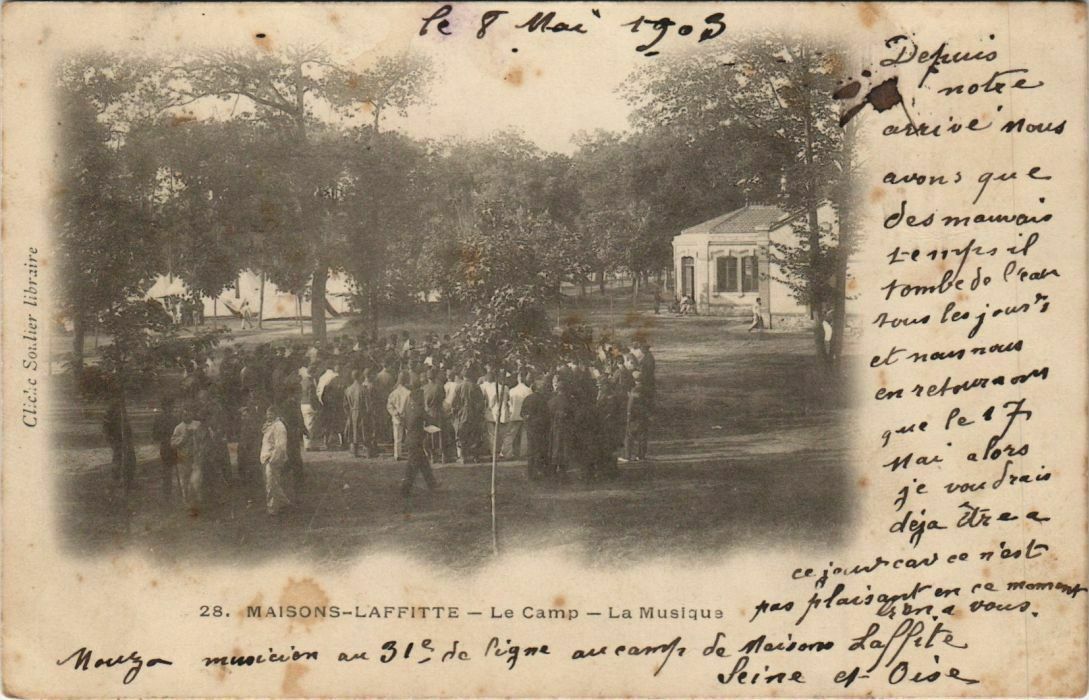 le 8 Mai 1903
Depuis
notre
arrivé nous
avons que
des mauvais
temps il
tombe de l'eau
tous les jours
et nous nous
en retournons
que le 17
Mai alors
je voudrais
déja être a
ce jour car ce n'est
pas plaisant en ce moment
a vous.
Cliché Soulier libraire
28. MAISONS-LAFFITTE — Le Camp — La Musique
musicien au 31e de ligne au camp de Maisons Laffite
Seine et Oise